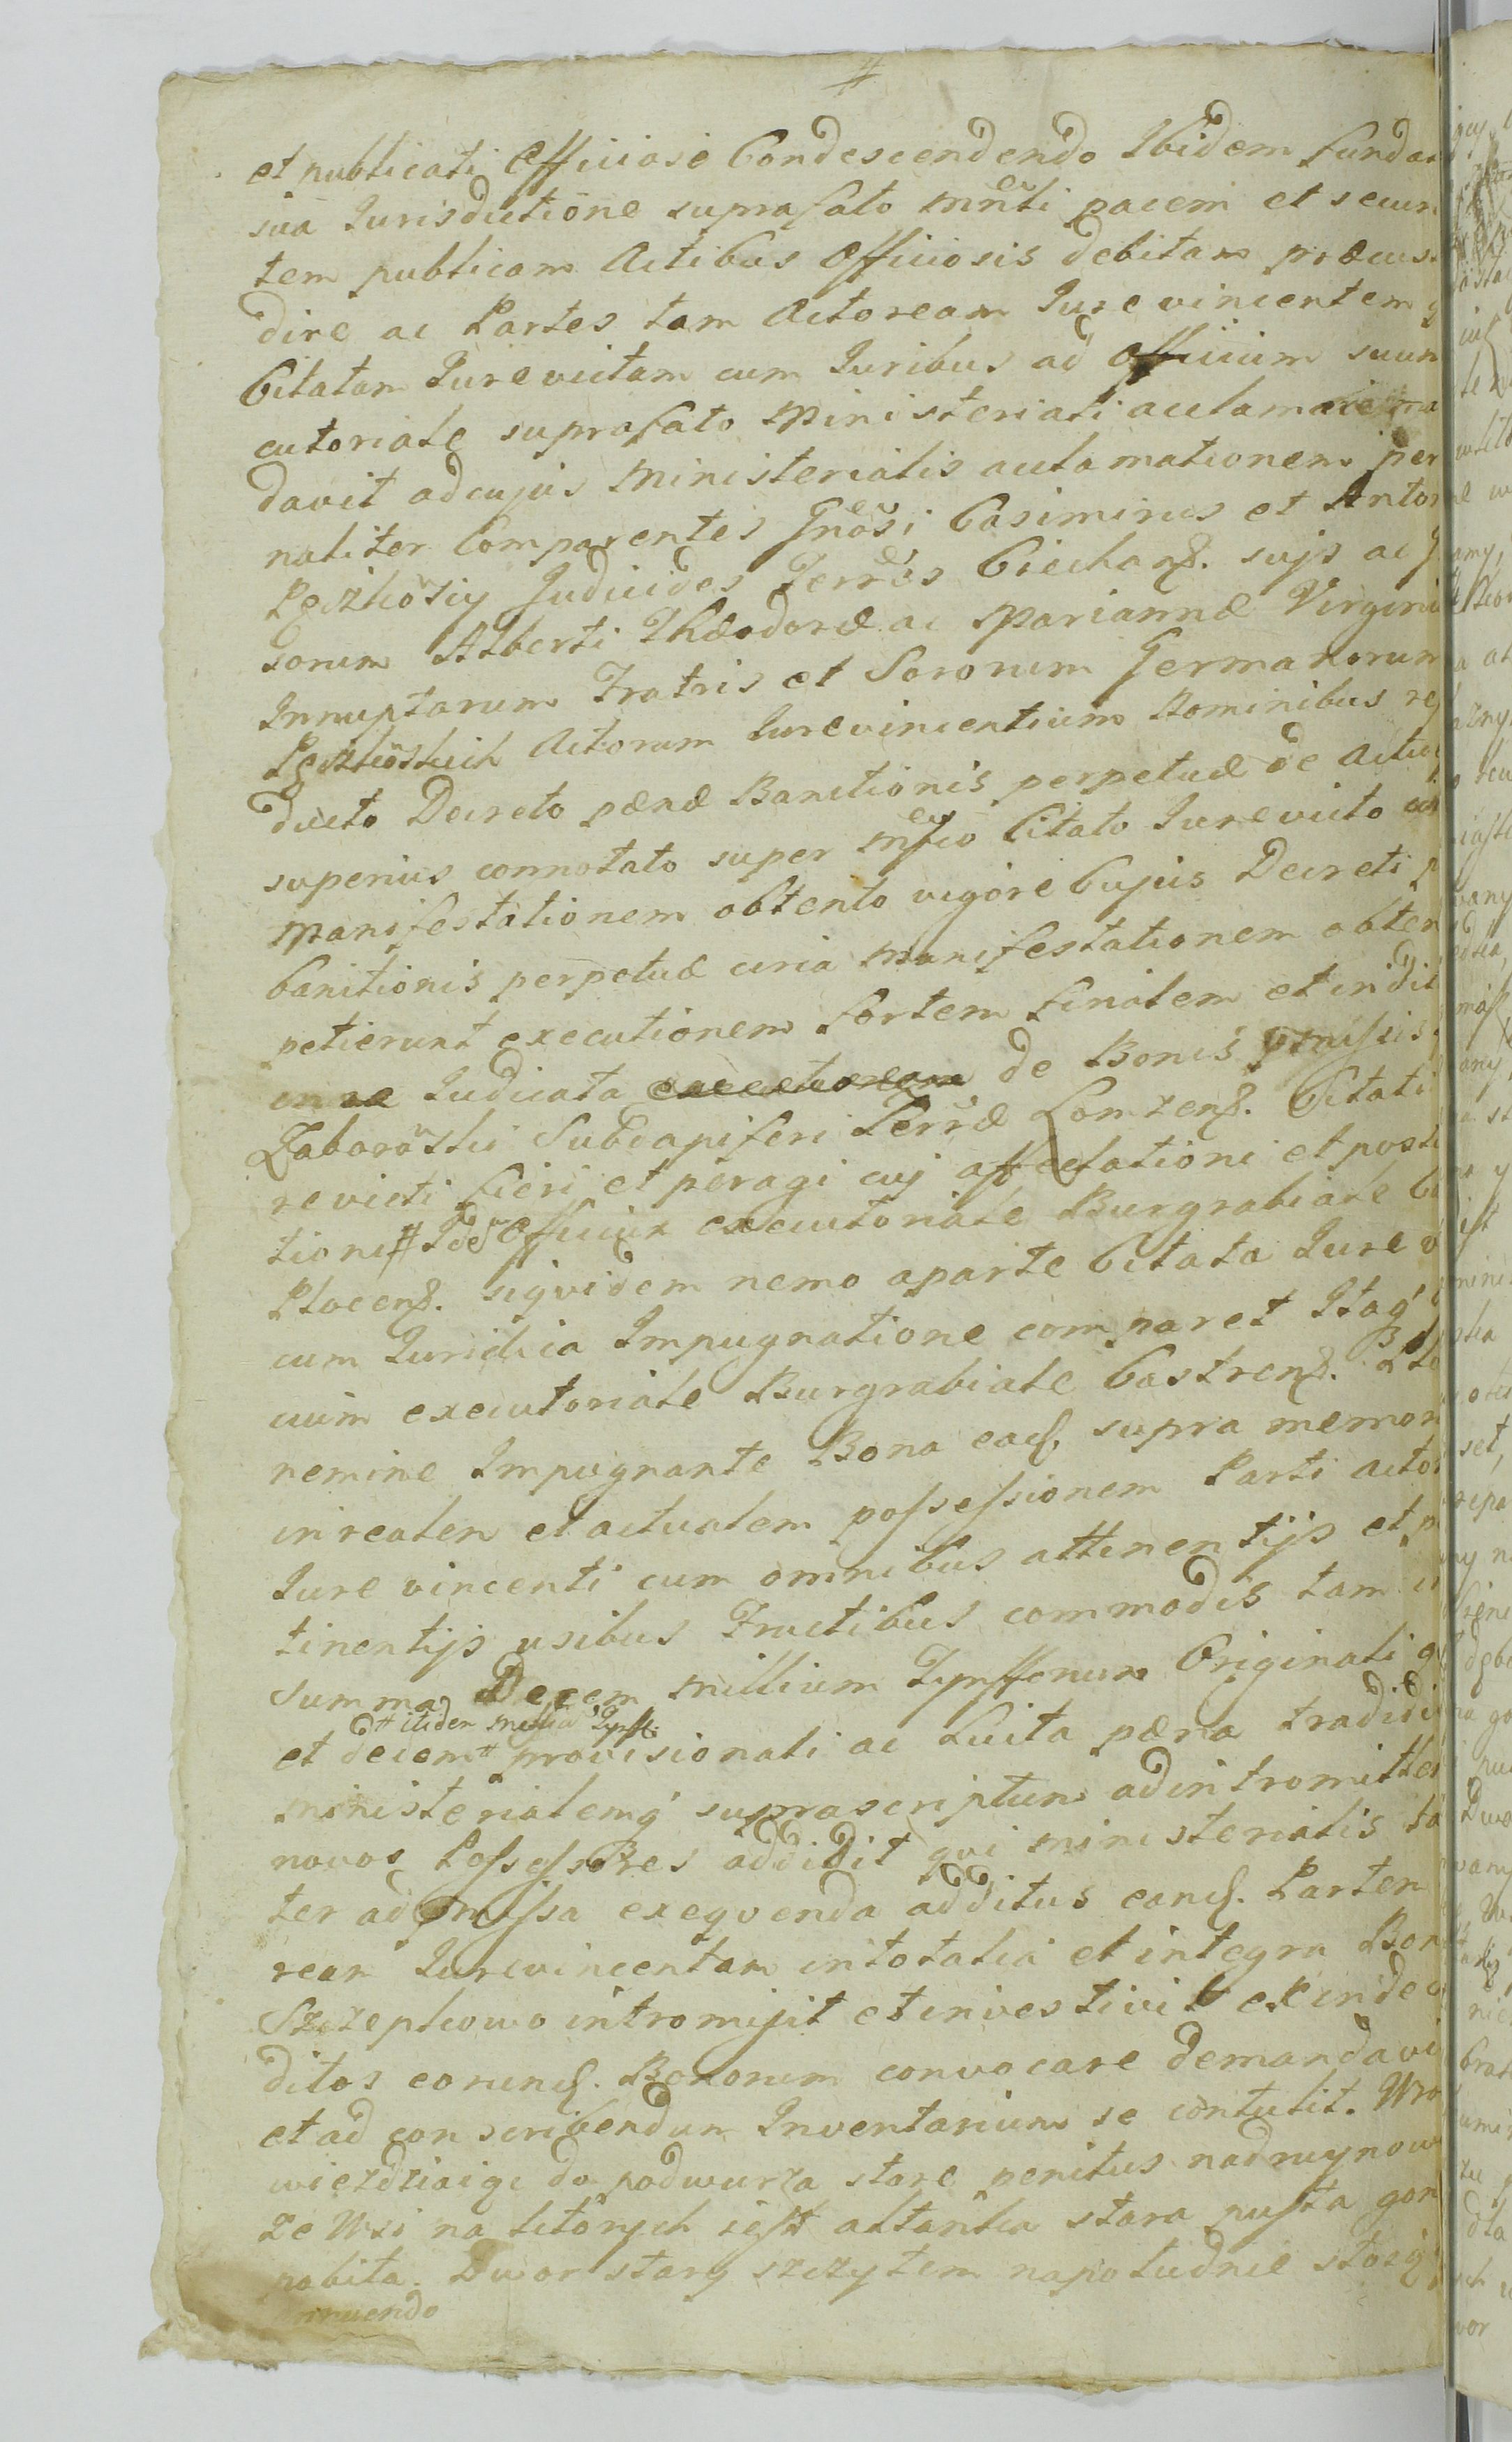 #
et publicati Officiose Condescendendo Ibidem fundat
sua Jurisdictione suprafato Mnlti pacem et secur
tem publicam Actibus Officiosis debitam præcus
dire ac Partes tam Actoream Jurevincentem
Citatam Jurevictam cum Juribus ad Officium suum
cutoriale suprafato Ministeriali acclamare ma
davit ad cujus Ministerialis acclamationem per
naliter Comparentes Gnosi Casimirus et Anton
Judicides Terres Ciechans. suis ac G
sorum Alberti Theodoræ ac Mariannæ Virgin
Innuptarum Fratris et Sororum Germanorum
Actorum Jurevincentium Nominibus re
ducto Decreto pænæ Banitionis perpetuæ de Actu
superius connotato super Citato Jurevicto
Manifestationem obtento vigore Cujus Decreti p
banitionis perpetuæ circa Manifestationem obten
petierunt executionem fortem finalem et indil
in re Judicata executionem de Bonis pmissis
Zaborowski Subdapiferi Terræ Lomzens. Citati
revicti fieri et peragi cuj affectationi et post
tioni # Idq Officium executoriale Burgrabiale C
Plocens. siqvidem nemo aparte Citata Jure v
cum Juridica Impugnatione comparet Itaq
cium executoriale Burgrabiale Castrens. Plo
nemine Impugnante Bona eads. supra memor
in realem et actualem possessionem Parti acto
Jure vincenti cum omnibus attinentijs et p
tinentijs usibus Fructibus commodis tam i
Summa Decem Millium Tynffonum Originali q
# itidem Millia Tynff.
et decem # provisionali ac Luita pæna tradidi
Ministerialemq suprascriptum ad intromitten
novos Possessores addidit qvi Ministerialis ta
ter ad pmissa exeqvenda additus eands. Partem
ream Jurevincentam in totalia et integra Bon
Szczepkowo intromisit et investivit exinde
ditos eorunds. Bonorum convocare demandavi
et ad conscribendum Inventarium se contulit. Wro
wiezdziaiąc do podwurza stare penitus nadruynow
ze Wsi na ktorych iest altanka stara pusta gon
pobita. Dwor stary szczytem napołudnie stoią